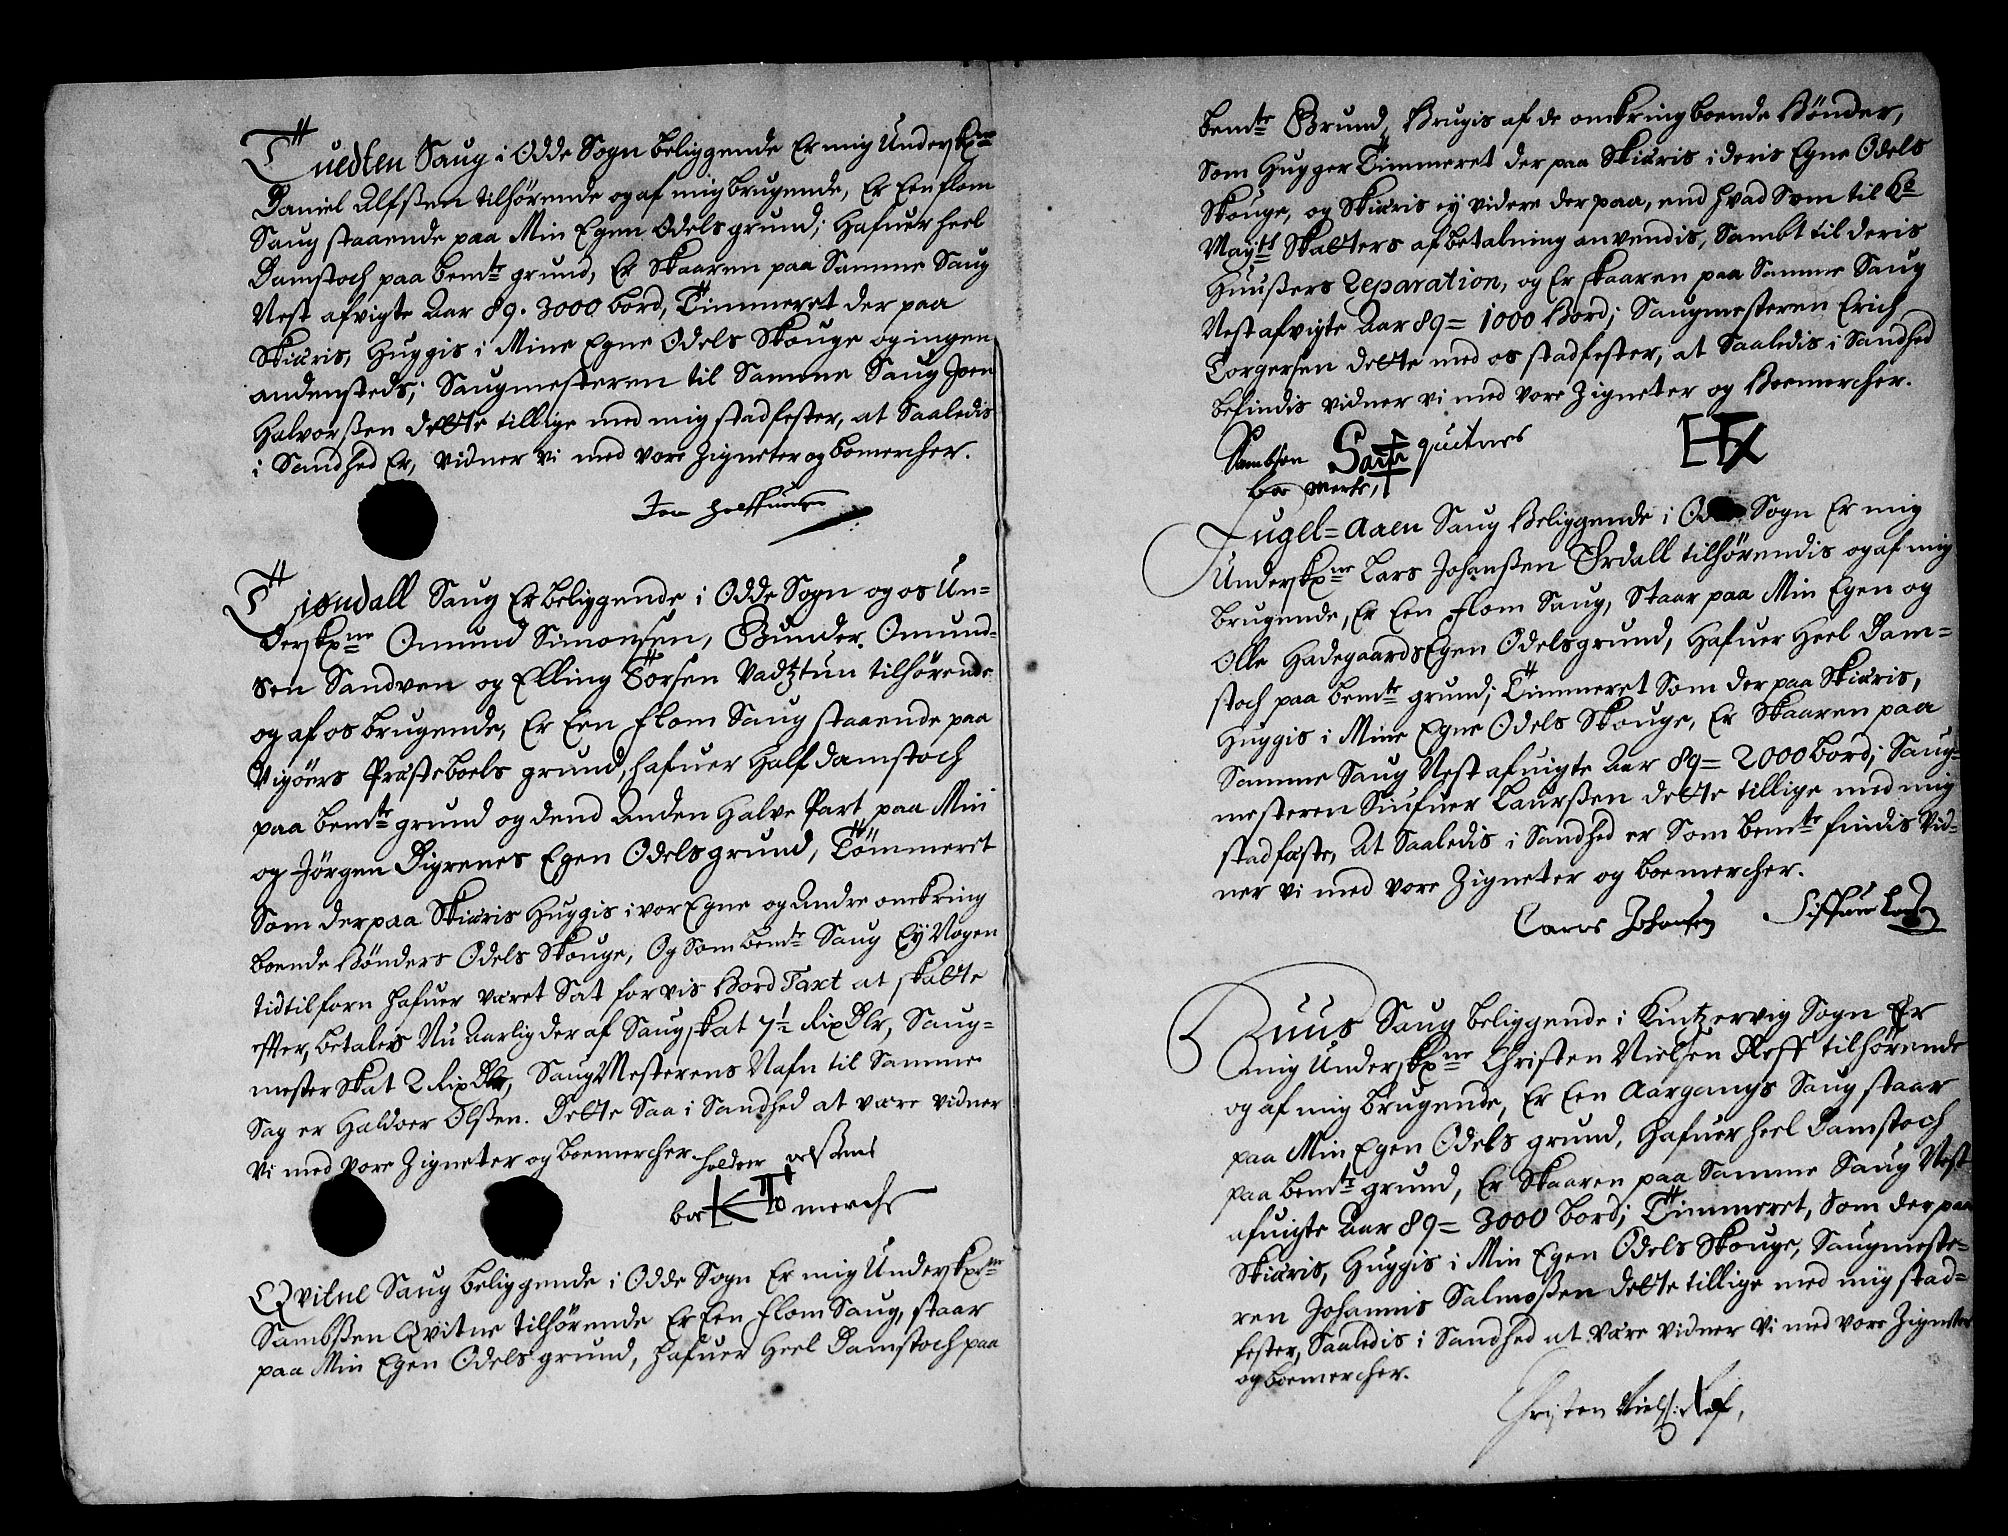 Tuedten Saug i Odde Sogn beliggende Er mig Undersk:ne
Daniel Alfsen tilhørende og af mig brugende, Er Een flom
Saug staaende paa Min Egen Odels grund; Hafuer heel
Damstoch paa bemte grund, Er Skaaren paa Samme Saug
Nest afvigte Aar 89. 3000 bord, Timmeret der paa
Skiæris, Huggis i Mine Egne Odels Skouge og ingen
andensteds; Saugmesteren til Samme Saug Joen
Halvorßen dette tillige med mig stadfester, at Saaledis
i Sandhed Er, vidner vi med vore Zigneter og bomercher.
Jon
Tiøndall Saug Er beliggende i Odde Sogn og os Un-
dersk:ne Omund Simonsen, Gunder Omund-
sen Sandven og Elling Törsen Vadtztun tilhørende
og af os brugende, Er Een flom Saug staaende paa
Vigöers Præsteboels grund, hafuer Half damstoch
paa bemte grund og dend Anden Halve Part paa Min
og Jörgen Digrenes Egen Odels grund, Tömmeret
Som der paa Skiæris Huggis i vor Egne og Andre omkring
boende Bönders Odels Skouge, Og Som bemte Saug Ey Nogen
tid tilforn hafuer været Sat for vis Bord Taxt at skatte
effter, betales Nu Aarlig der af Saugskat 7½ RixDlr, Saug-
mester Skat 2 RixDlr, SaugMesterens Nafn til Samme
Sag er Haldoer Olßen. Dette Saa i Sandhed at være vidner
Vi med vore Zigneter og boemercher. holdoer olßens
boe merche
Qvitne Saug beliggende i Odde Sogn Er mig Undersk:ne
Sambßen Qvitne tilhørende Er Een flom Saug, staar
paa Min Egen Odels grund, hafuer Heel Damstoch paa
bemte Grund, Brugis af de omkring boende Bönder,
Som Hugger Timmeret der paa Skiæris i deris Egne Odels
Skouge, og Skiæris ey videre der paa, end hvad Som til Ko
Mayts Skatters afbetalning anvendis, Sambt til deris
Huußers Reparation, og Er skaaren paa Samme Saug
Nest afvigte Aar 89= 1000 Bord; Saugmesteren Erich
Torgersen dette med os stadfester, at Saaledis i Sandhed
befindis vidner vi med vore Zigneter og Boemercher.
Sambsen quitnes
boe merke,
Fugel=Aaen Saug Beliggende i Odde Sogn Er mig
Undersk:ne Lars Johanßen Ørdall tilhørendis og af mig
brugende, Er Een flom Saug, Staar paa Min Egen og
Olle Hadegaards Egen Odels grund, Hafuer Heel Dam-
stoch paa bemte grund; Timmeret Som der paa Skiæris,
Huggis i Mine Egne Odels Skouge, Er Skaaren paa
Samme Saug Nest afuigte Aar 89= 2000 bord; Saug-
mesteren Siufuer Laurßen dette tillige med mig
stadfæste, At Saaledis i Sandhed er Som bemte findis Vid-
ner vi med vore Zigneter og boemercher.
Lars Johansen
Guus Saug beliggende i Kintzervig Sogn Er
mig Undersk:ne Christen Nielsen Reff tilhørende
og af mig brugende, Er Een Aargangs Saug staar
paa Min Egen Odels grund, Hafuer heel Damstoch
paa bemte grund, Er Skaaren paa Samme Saug Nest
afuigte Aar 89= 3000 bord; Timmeret, Som der paa
Skiæris, Huggis i Min Egen Odels Skouge, Saugmeste-
ren Johannis Salmoßen dette tillige med mig stad-
fester, Saaledis i Sandhed at være vidner Vi med vore Zigneter
og boemercher.
Christen Niels: Ref,